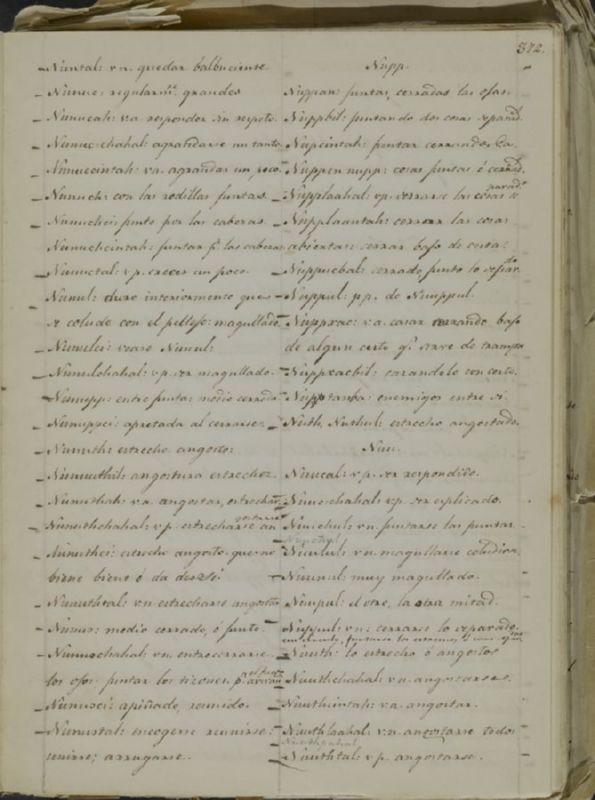 372.
Nuntal: vn. quedar balbuciente.
Nunuc: regular grandes
Nunucah: va responder sin respeto.
Nunucchahal: agrandarse un tanto
Nunuccintah: va. agrandar un poco.
Nunuch: con las rodillas juntas.
Nunuchci: junto por las cabezas.
Nunuchcintah: juntar las cabezas
Nunuctal: vp. crecer un poco.
Nunul: interiormente que
se colude con el pellejo: magullado.
Nunulci: vease Nunul:
Nunulchahal: vp. ser magullado.
Nunupp: entre juntar medio cerrado
Nunuppci: apretada al cerrarse.
Nunuth: estrecho angosto:
Nunuthil: angostura estrechez.
Nunuthah: va. angostar, estrechar
Nunuthchahal: vp. estrecharse an
gostarse
Nunuthci: estrecho angosto que no
biene biene ó da de sí.
Nunuthtal: vn estrecharse angostar
Nunuz: medio cerrado, ó junto.
Nunuzchahal: vn. entrecerrarse
los ojos: juntar los tizones
Nunuzci: apiñado, reunido.
Nunuztal: encogerse reunirse:
unirse; arrugarse.
Nupp.
Nuppan: juntas, cerradas las
Nuppbil: juntando dos cosas
Nupcintah: juntar cerrando
Nuppen nupp: cosas juntas ó
Nupplaahal: vp. cerrarse las cosas
Nupplaantah: cerrar las cosas
abiertas: cerrar bajo de
Nuppuebal: cerrado junto lo
Nuppul: pp. de Nuuppul.
Nuppxac: va. cazar cerrando bajo
de algun cesto qe. sirve de trampa
Nuppxacbil: cazandolo con cesto.
Nupptanba: enemigos entre si.
Nuth, Nuthul: estrecho angostado.
Nuu.
Nuucal: vp. ser respondido.
Nuucchahal: vp. ser esplicado.
Nuuchul: vn juntarse las puntas
Nuulul: vn magullarse
Nuunul: muy magullado.
Nuupul: el otro, la otra mitad.
Nuppul: vn: cerrarse lo separado
Nuuth: lo estrecho ó angosto
Nuuthchahal: vn. angostarse.
Nuuthcintah: va. angostar.
Nuuthlahal: vn angostarse todo
Nuuthtal: vp. angostarse.